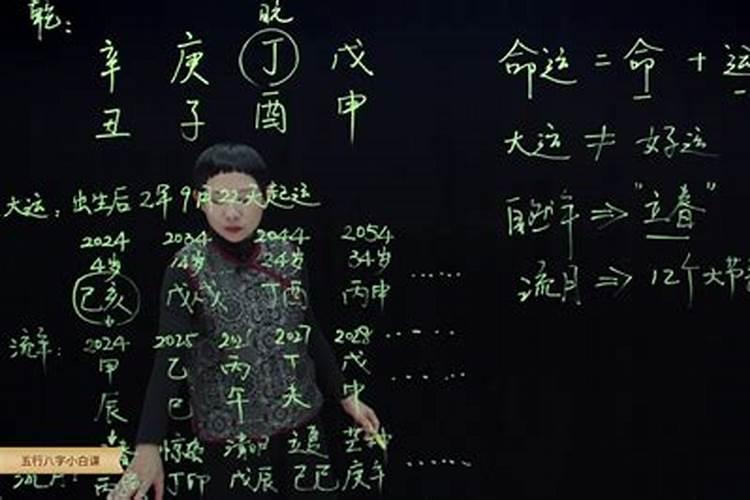 乾:
皖
辛 庚 丁 戊
丑 子 酉 申
大运: 出生后 2年9月22天起运
2024 2034 2044 2054
4岁 14岁 24岁 34岁 ......
己亥 戊戌 丁酉 丙申
流年: 2024 2025 2027 2028 ......
甲 乙 丙 丁 戊
辰 巳 午 未 申 ......
惊蛰 清明 立夏 芒种
丁卯 戊辰 己巳 庚午 ......
命运 = 命 + 运
大运 ≠ 好运
自然年 ⇒ "立春"
流月 ⇒ 12个大节
五行八字小白课